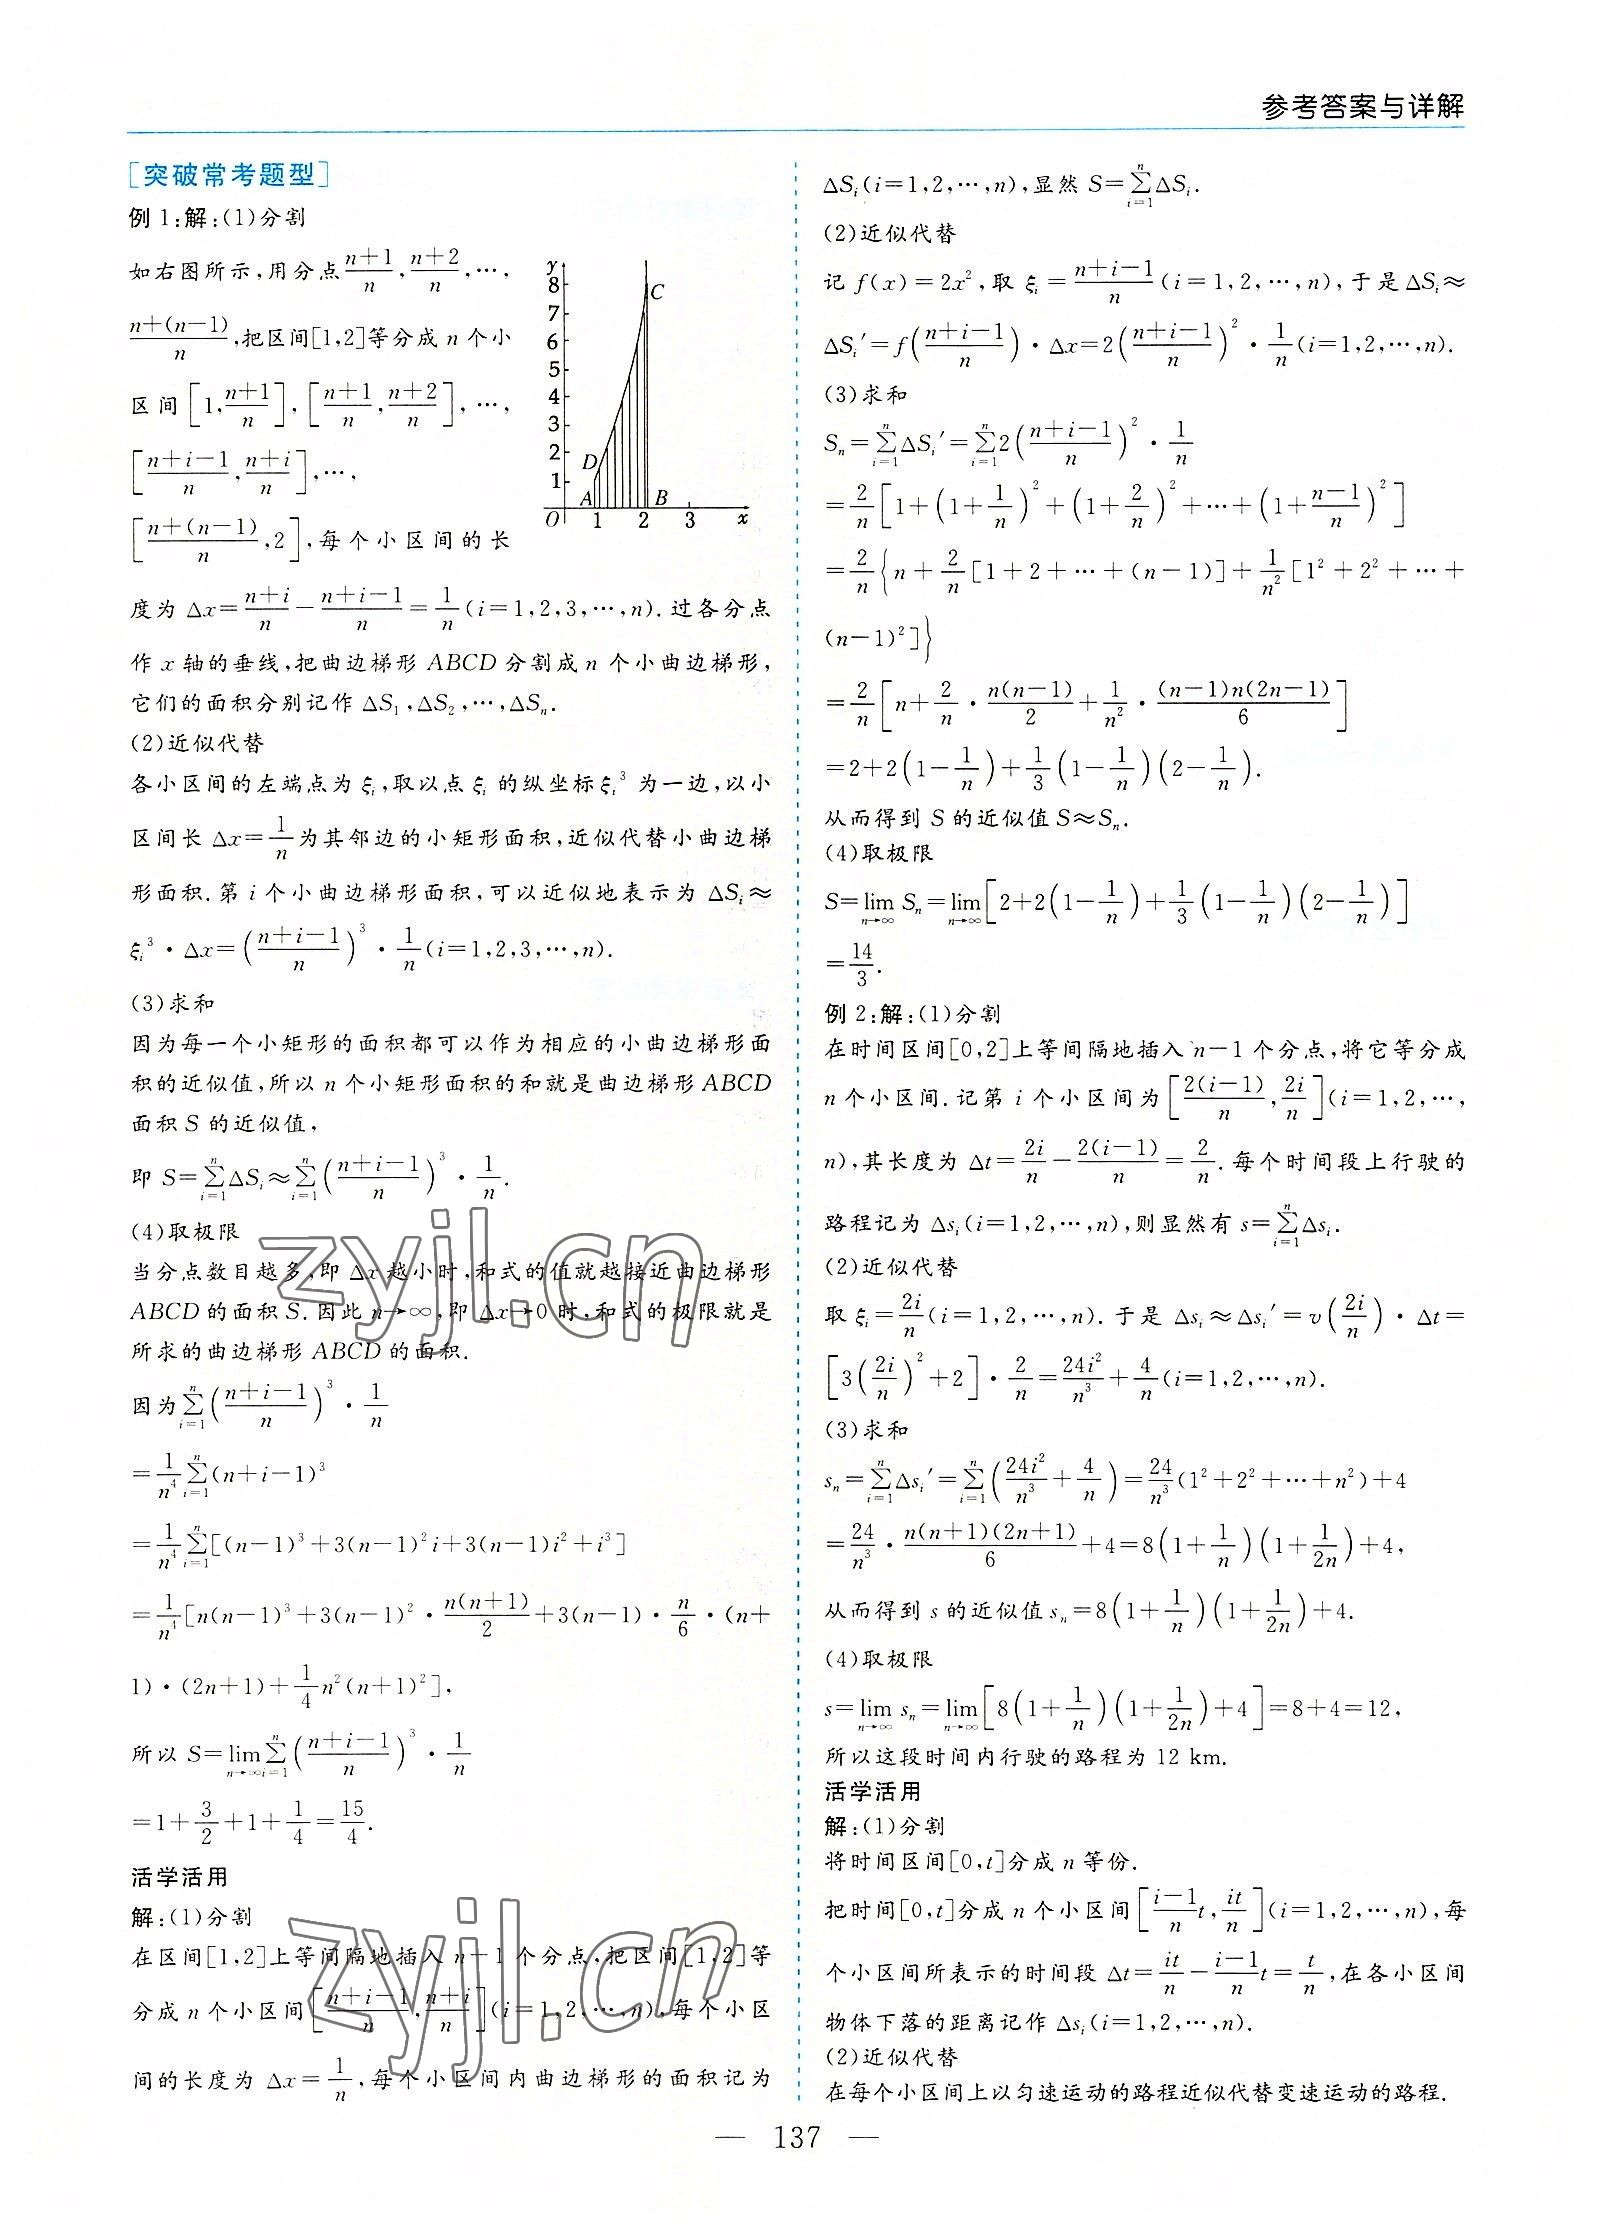 参考答案与详解
[突破常考题型]
例 1:解:(1)分割
如右图所示,用分点 \frac{n+1}{n}, \frac{n+2}{n},…,
\frac{n+(n-1)}{n},把区间[1,2]等分成 n 个小
区间 [1,\frac{n+1}{n}], [\frac{n+1}{n},\frac{n+2}{n}],…,
[\frac{n+i-1}{n},\frac{n+i}{n}],…,
[\frac{n+(n-1)}{n},2],每个小区间的长
y
8
7
6
5
4
3
2
1
C
D
A
B
O 1 2 3 x
度为 Δx=\frac{n+i}{n}-\frac{n+i-1}{n}=\frac{1}{n}(i=1,2,3,…,n).过各分点
作 x 轴的垂线,把曲边梯形 ABCD 分割成 n 个小曲边梯形,
它们的面积分别记作 ΔS₁,ΔS₂,…,ΔSₙ.
(2)近似代替
各小区间的左端点为 ξᵢ,取以点 ξᵢ 的纵坐标 ξᵢ³ 为一边,以小
区间长 Δx=\frac{1}{n}为其邻边的小矩形面积,近似代替小曲边梯
形面积.第 i 个小曲边梯形面积,可以近似地表示为 ΔSᵢ≈
ξᵢ³·Δx=(\frac{n+i-1}{n})³·\frac{1}{n}(i=1,2,3,…,n).
(3)求和
因为每一个小矩形的面积都可以作为相应的小曲边梯形面
积的近似值,所以 n 个小矩形面积的和就是曲边梯形 ABCD
面积 S 的近似值,
即 S=\sum_{i=1}^{n}ΔSᵢ≈\sum_{i=1}^{n}(\frac{n+i-1}{n})³·\frac{1}{n}.
(4)取极限
当分点数目越多,即 Δx 越小时,和式的值就越接近曲边梯形
ABCD 的面积 S.因此 n→∞,即 Δx→0 时,和式的极限就是
所求的曲边梯形 ABCD 的面积.
因为\sum_{i=1}^{n}(\frac{n+i-1}{n})³·\frac{1}{n}
=\frac{1}{n⁴}\sum_{i=1}^{n}(n+i-1)³
=\frac{1}{n⁴}\sum_{i=1}^{n}[(n-1)³+3(n-1)²i+3(n-1)i²+i³]
=\frac{1}{n⁴}[n(n-1)³+3(n-1)²·\frac{n(n+1)}{2}+3(n-1)·\frac{n}{6}·(n+
1)·(2n+1)+\frac{1}{4}n²(n+1)²],
所以 S=\lim_{n→∞}\sum_{i=1}^{n}(\frac{n+i-1}{n})³·\frac{1}{n}
=1+\frac{3}{2}+1+\frac{1}{4}=\frac{15}{4}.
活学活用
解:(1)分割
在区间[1,2]上等间隔地插入 n-1 个分点,把区间[1,2]等
分成 n 个小区间[\frac{n+i-1}{n},\frac{n+i}{n}](i=1,2,…,n),每个小区
间的长度为 Δx=\frac{1}{n},每个小区间内曲边梯形的面积记为
ΔSᵢ(i=1,2,…,n),显然 S=\sum_{i=1}^{n}ΔSᵢ.
(2)近似代替
记 f(x)=2x²,取 ξᵢ=\frac{n+i-1}{n}(i=1,2,…,n),于是 ΔSᵢ≈
ΔSᵢ′=f(\frac{n+i-1}{n})·Δx=2(\frac{n+i-1}{n})²·\frac{1}{n}(i=1,2,…,n).
(3)求和
Sₙ=\sum_{i=1}^{n}ΔSᵢ′=\sum_{i=1}^{n}2(\frac{n+i-1}{n})²·\frac{1}{n}
=\frac{2}{n}[1+(1+\frac{1}{n})²+(1+\frac{2}{n})²+…+(1+\frac{n-1}{n})²]
=\frac{2}{n}{n+\frac{2}{n}[1+2+…+(n-1)]+\frac{1}{n²}[1²+2²+…+
(n-1)²]}
=\frac{2}{n}[n+\frac{2}{n}·\frac{n(n-1)}{2}+\frac{1}{n²}·\frac{(n-1)n(2n-1)}{6}]
=2+2(1-\frac{1}{n})+\frac{1}{3}(1-\frac{1}{n})(2-\frac{1}{n}).
从而得到 S 的近似值 S≈Sₙ.
(4)取极限
S=\lim_{n→∞}Sₙ=\lim_{n→∞}[2+2(1-\frac{1}{n})+\frac{1}{3}(1-\frac{1}{n})(2-\frac{1}{n})]
=\frac{14}{3}.
例 2:解:(1)分割
在时间区间[0,2]上等间隔地插入 n-1 个分点,将它等分成
n 个小区间.记第 i 个小区间为[\frac{2(i-1)}{n},\frac{2i}{n}](i=1,2,…,
n),其长度为 Δt=\frac{2i}{n}-\frac{2(i-1)}{n}=\frac{2}{n}.每个时间段上行驶的
路程记为 Δsᵢ(i=1,2,…,n),则显然有 s=\sum_{i=1}^{n}Δsᵢ.
(2)近似代替
取 ξᵢ=\frac{2i}{n}(i=1,2,…,n).于是 Δsᵢ≈Δsᵢ′=v(\frac{2i}{n})·Δt=
[3(\frac{2i}{n})²+2]·\frac{2}{n}=\frac{24i²}{n³}+\frac{4}{n}(i=1,2,…,n).
(3)求和
sₙ=\sum_{i=1}^{n}Δsᵢ′=\sum_{i=1}^{n}(\frac{24i²}{n³}+\frac{4}{n})=\frac{24}{n³}(1²+2²+…+n²)+4
=\frac{24}{n³}·\frac{n(n+1)(2n+1)}{6}+4=8(1+\frac{1}{n})(1+\frac{1}{2n})+4,
从而得到 s 的近似值 sₙ=8(1+\frac{1}{n})(1+\frac{1}{2n})+4.
(4)取极限
s=\lim_{n→∞}sₙ=\lim_{n→∞}[8(1+\frac{1}{n})(1+\frac{1}{2n})+4]=8+4=12,
所以这段时间内行驶的路程为 12 km.
活学活用
解:(1)分割
将时间区间[0,t]分成 n 等份.
把时间[0,t]分成 n 个小区间[\frac{i-1}{n}t,\frac{it}{n}](i=1,2,…,n),每
个小区间所表示的时间段 Δt=\frac{it}{n}-\frac{i-1}{n}t=\frac{t}{n},在各小区间
物体下落的距离记作 Δsᵢ(i=1,2,…,n).
(2)近似代替
在每个小区间上以匀速运动的路程近似代替变速运动的路程.
— 137 —
zyjl.cn
zyjl.cn